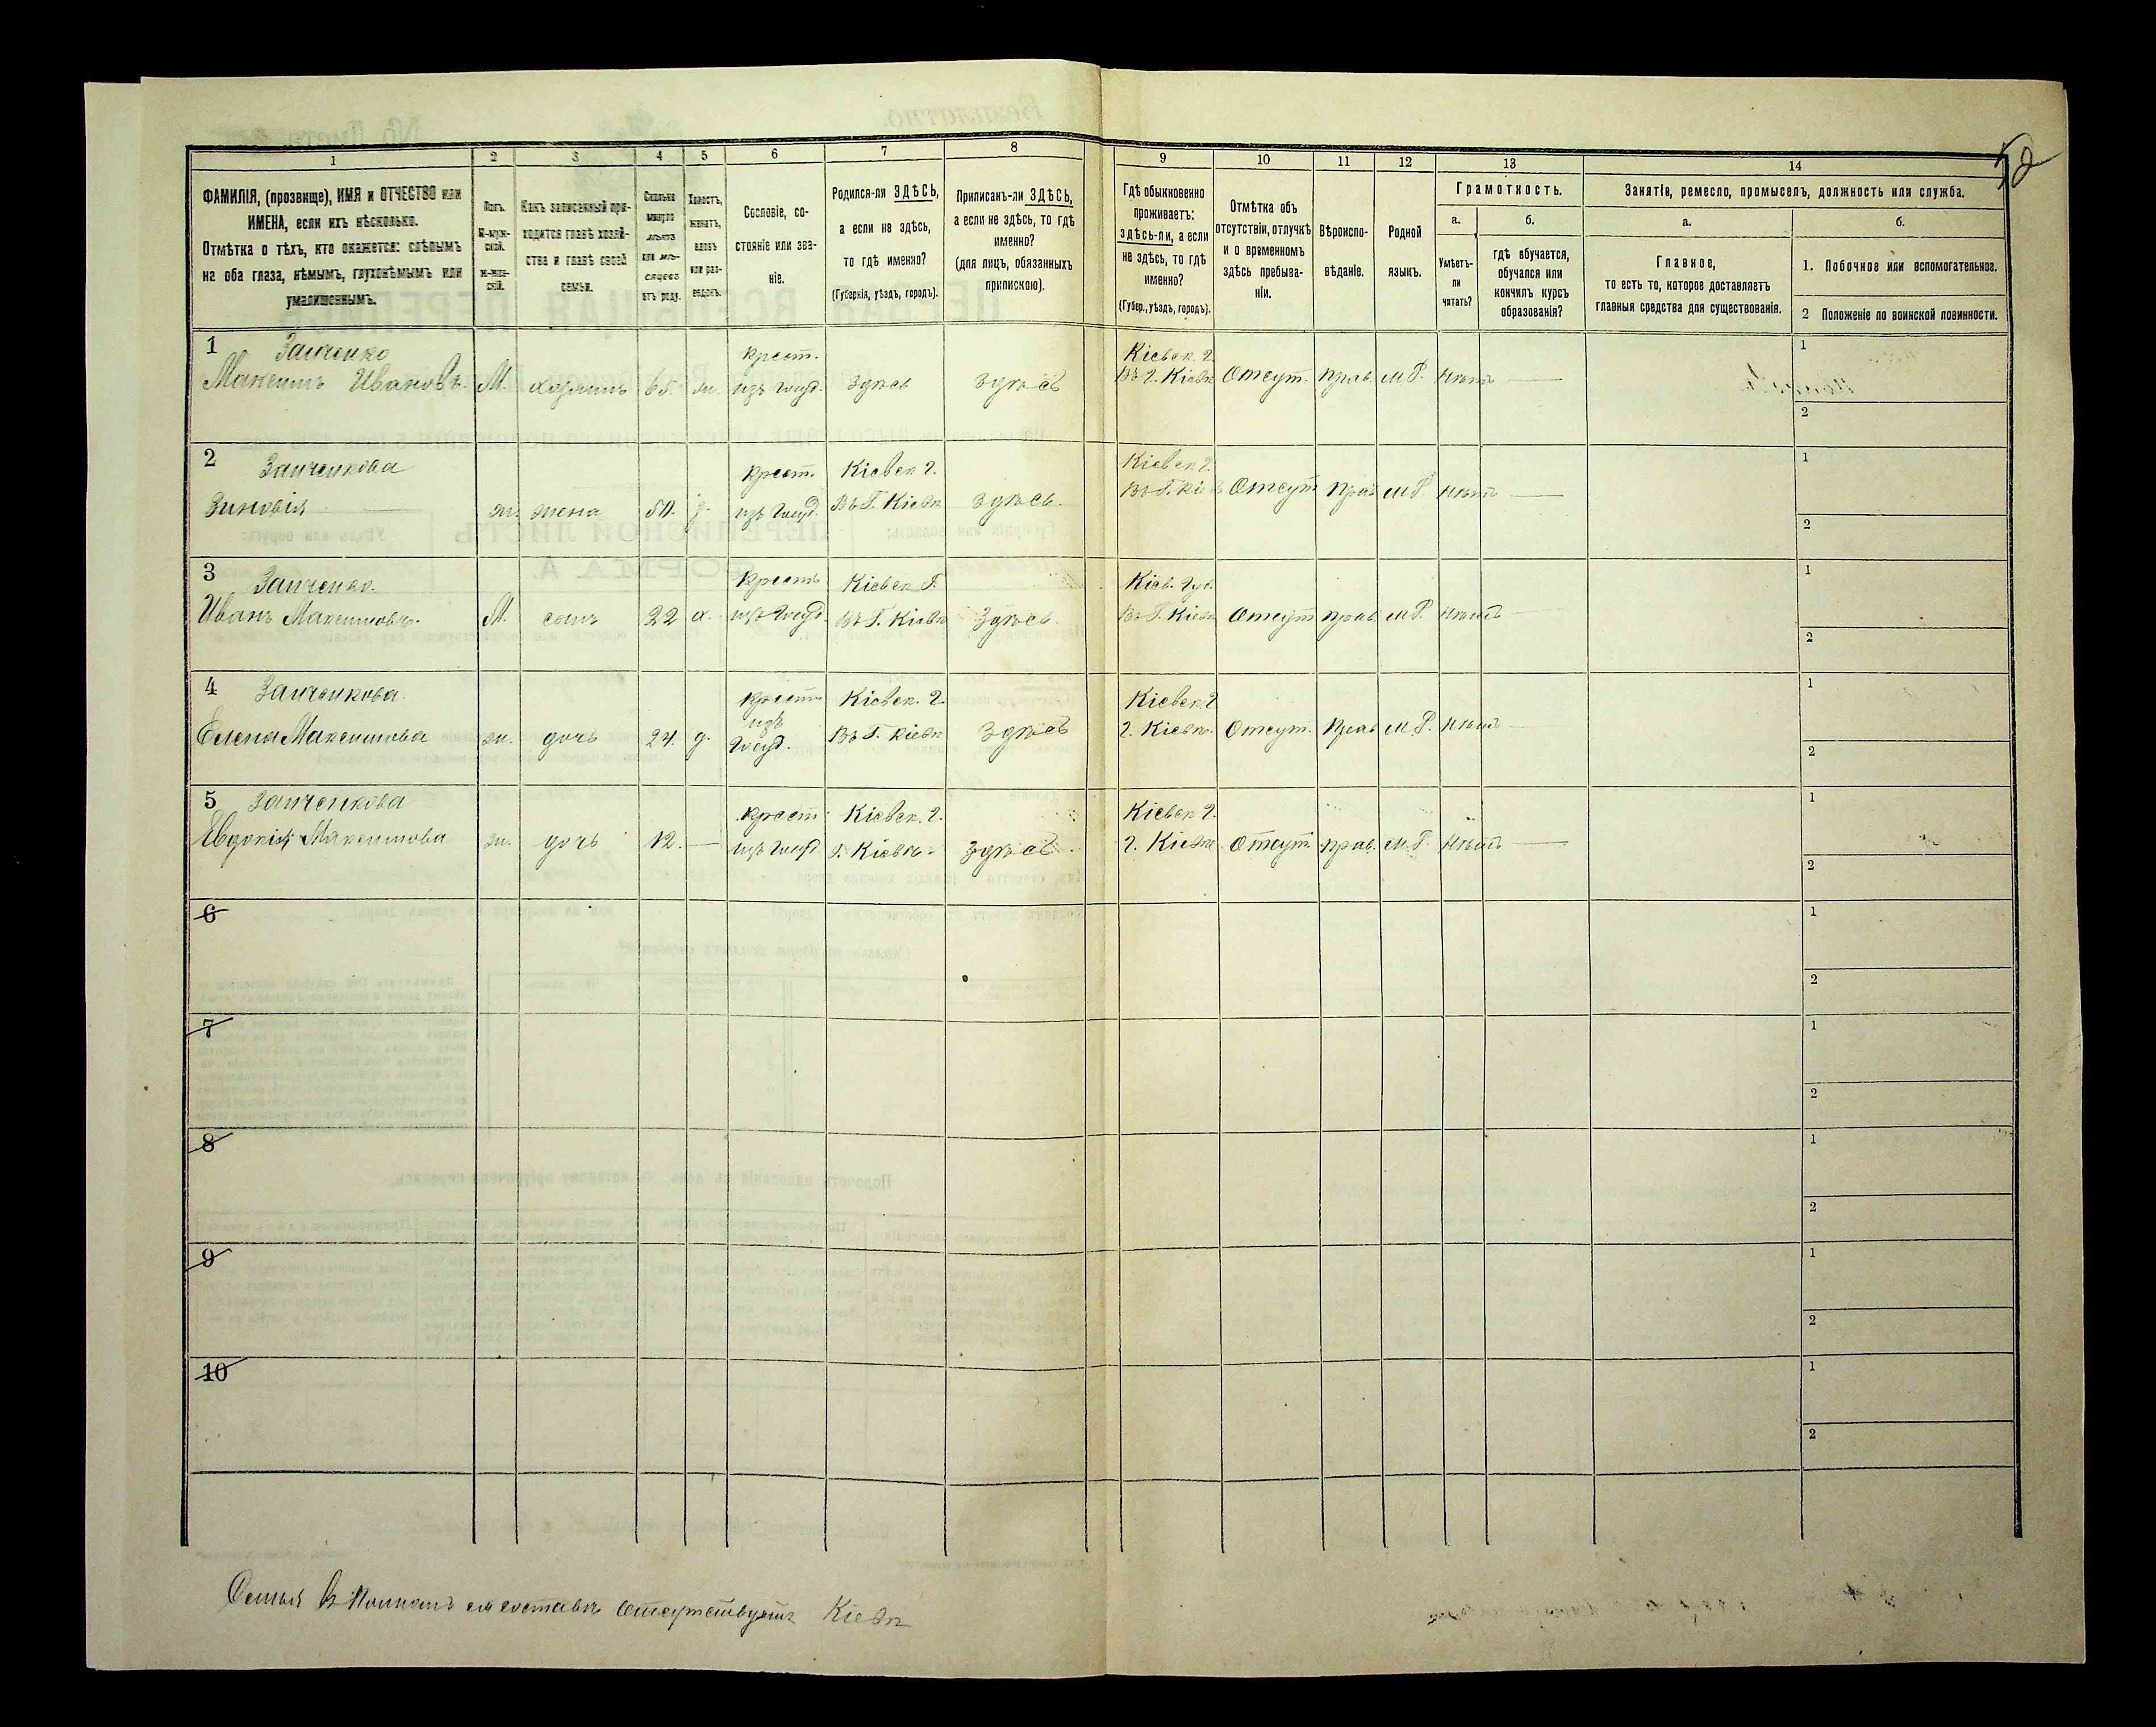 52
1 2 3 4 5 6 7 8 9 10 11 12 13 14
ФАМИЛІЯ, (прозвище), ИМЯ и ОТЧЕСТВО или
ИМЕНА, если ихъ нѣсколько.
Отмѣтка о тѣхъ, кто окажется: слѣпымъ
на оба глаза, нѣмымъ, глухонѣмымъ или
умалишеннымъ.
Полъ.
М-муж-
ской.
ж-жен-
скій.
Какъ записанный при-
ходится главѣ хозяй-
ства и главѣ своей
семьи.
Сколько
минуло
лѣтъ
или мѣ-
сяцевъ
отъ роду.
Холостъ,
женатъ,
вдовъ
или раз-
веденъ.
Сословіе, со-
стояніе или зва-
ніе.
Родился-ли ЗДѢСЬ,
а если не здѣсь,
то гдѣ именно?
(Губернія, уѣздъ, городъ).
Приписанъ-ли ЗДѢСЬ,
а если не здѣсь, то гдѣ
именно?
(для лицъ, обязанныхъ
припискою).
Гдѣ обыкновенно
проживаетъ:
здѣсь-ли, а если
не здѣсь, то гдѣ
именно?
(Губер., уѣздъ, городъ).
Отмѣтка объ
отсутствіи, отлучкѣ
и о временномъ
здѣсь пребыва-
ніи.
Вѣроиспо-
вѣданіе.
Родной
языкъ.
Грамотность.
а.
Умѣетъ-
ли
читать?
б.
гдѣ обучается,
обучался или
кончилъ курсъ
образованія?
Занятіе, ремесло, промыселъ, должность или служба.
а.
Главное,
то есть то, которое доставляетъ
главныя средства для существованія.
б.
1. Побочное или вспомогательное.
2 Положеніе по воинской повинности.
1 Заиченко крест. Кіевск. г. 1
Максимъ Ивановъ. М. хозяинъ 65. ж. изъ госуд. здѣсь здѣсь Въ г. Кіевѣ Отсут. прав. м.Р. нѣтъ —
2
2 Заиченкова крест. Кіевск г. Кіевск г. 1
Зиновія — ж. жена 50. изъ госуд. Въ Г. Кіевѣ здѣсь. Въ Г. Кіевѣ Отсут прав м.Р. нѣтъ —
2
3 Заиченко. крестъ Кіевск Г. Кіев. Губ. 1
Иванъ Максимовъ. М. сынъ 22 х. изъ госуд. Въ Г. Кіевѣ Здѣсь. Въ Г. Кіевѣ Отсут прав. м.Р. нѣтъ —
2
4 Заиченкова. крестъ Кіевск. г. Кіевск г 1
Елена Максимова ж. дочь 24. д. изъ госуд. Въ Г. Кіевѣ Здѣсь г. Кіевѣ. Отсут. Прав м.Р. нѣтъ —
2
5 Заиченкова крест. Кіевск. г. Кіевск г. 1
Евдокія Максимова ж. дочь 12. — изъ госуд. г. Кіевѣ. здѣсь. г. Кіевѣ Отсут. прав. м.Р. нѣтъ —
2
6 1
2
7 1
2
8 1
2
9 1
2
10 1
2
Семья въ полномъ ея составѣ отсутствуетъ Кіевѣ